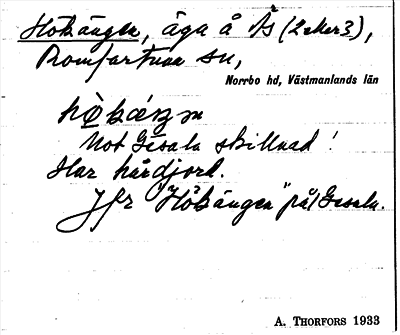 Hökängen, äga å Ås (2 eller 3),
Romfartuna sn,
Norrbo hd, Västmanlands län
Mot Gesala skillnad!
Har hårdjord.
Jfr "Hökängen" på Gesala.
A. THORFORS 1933